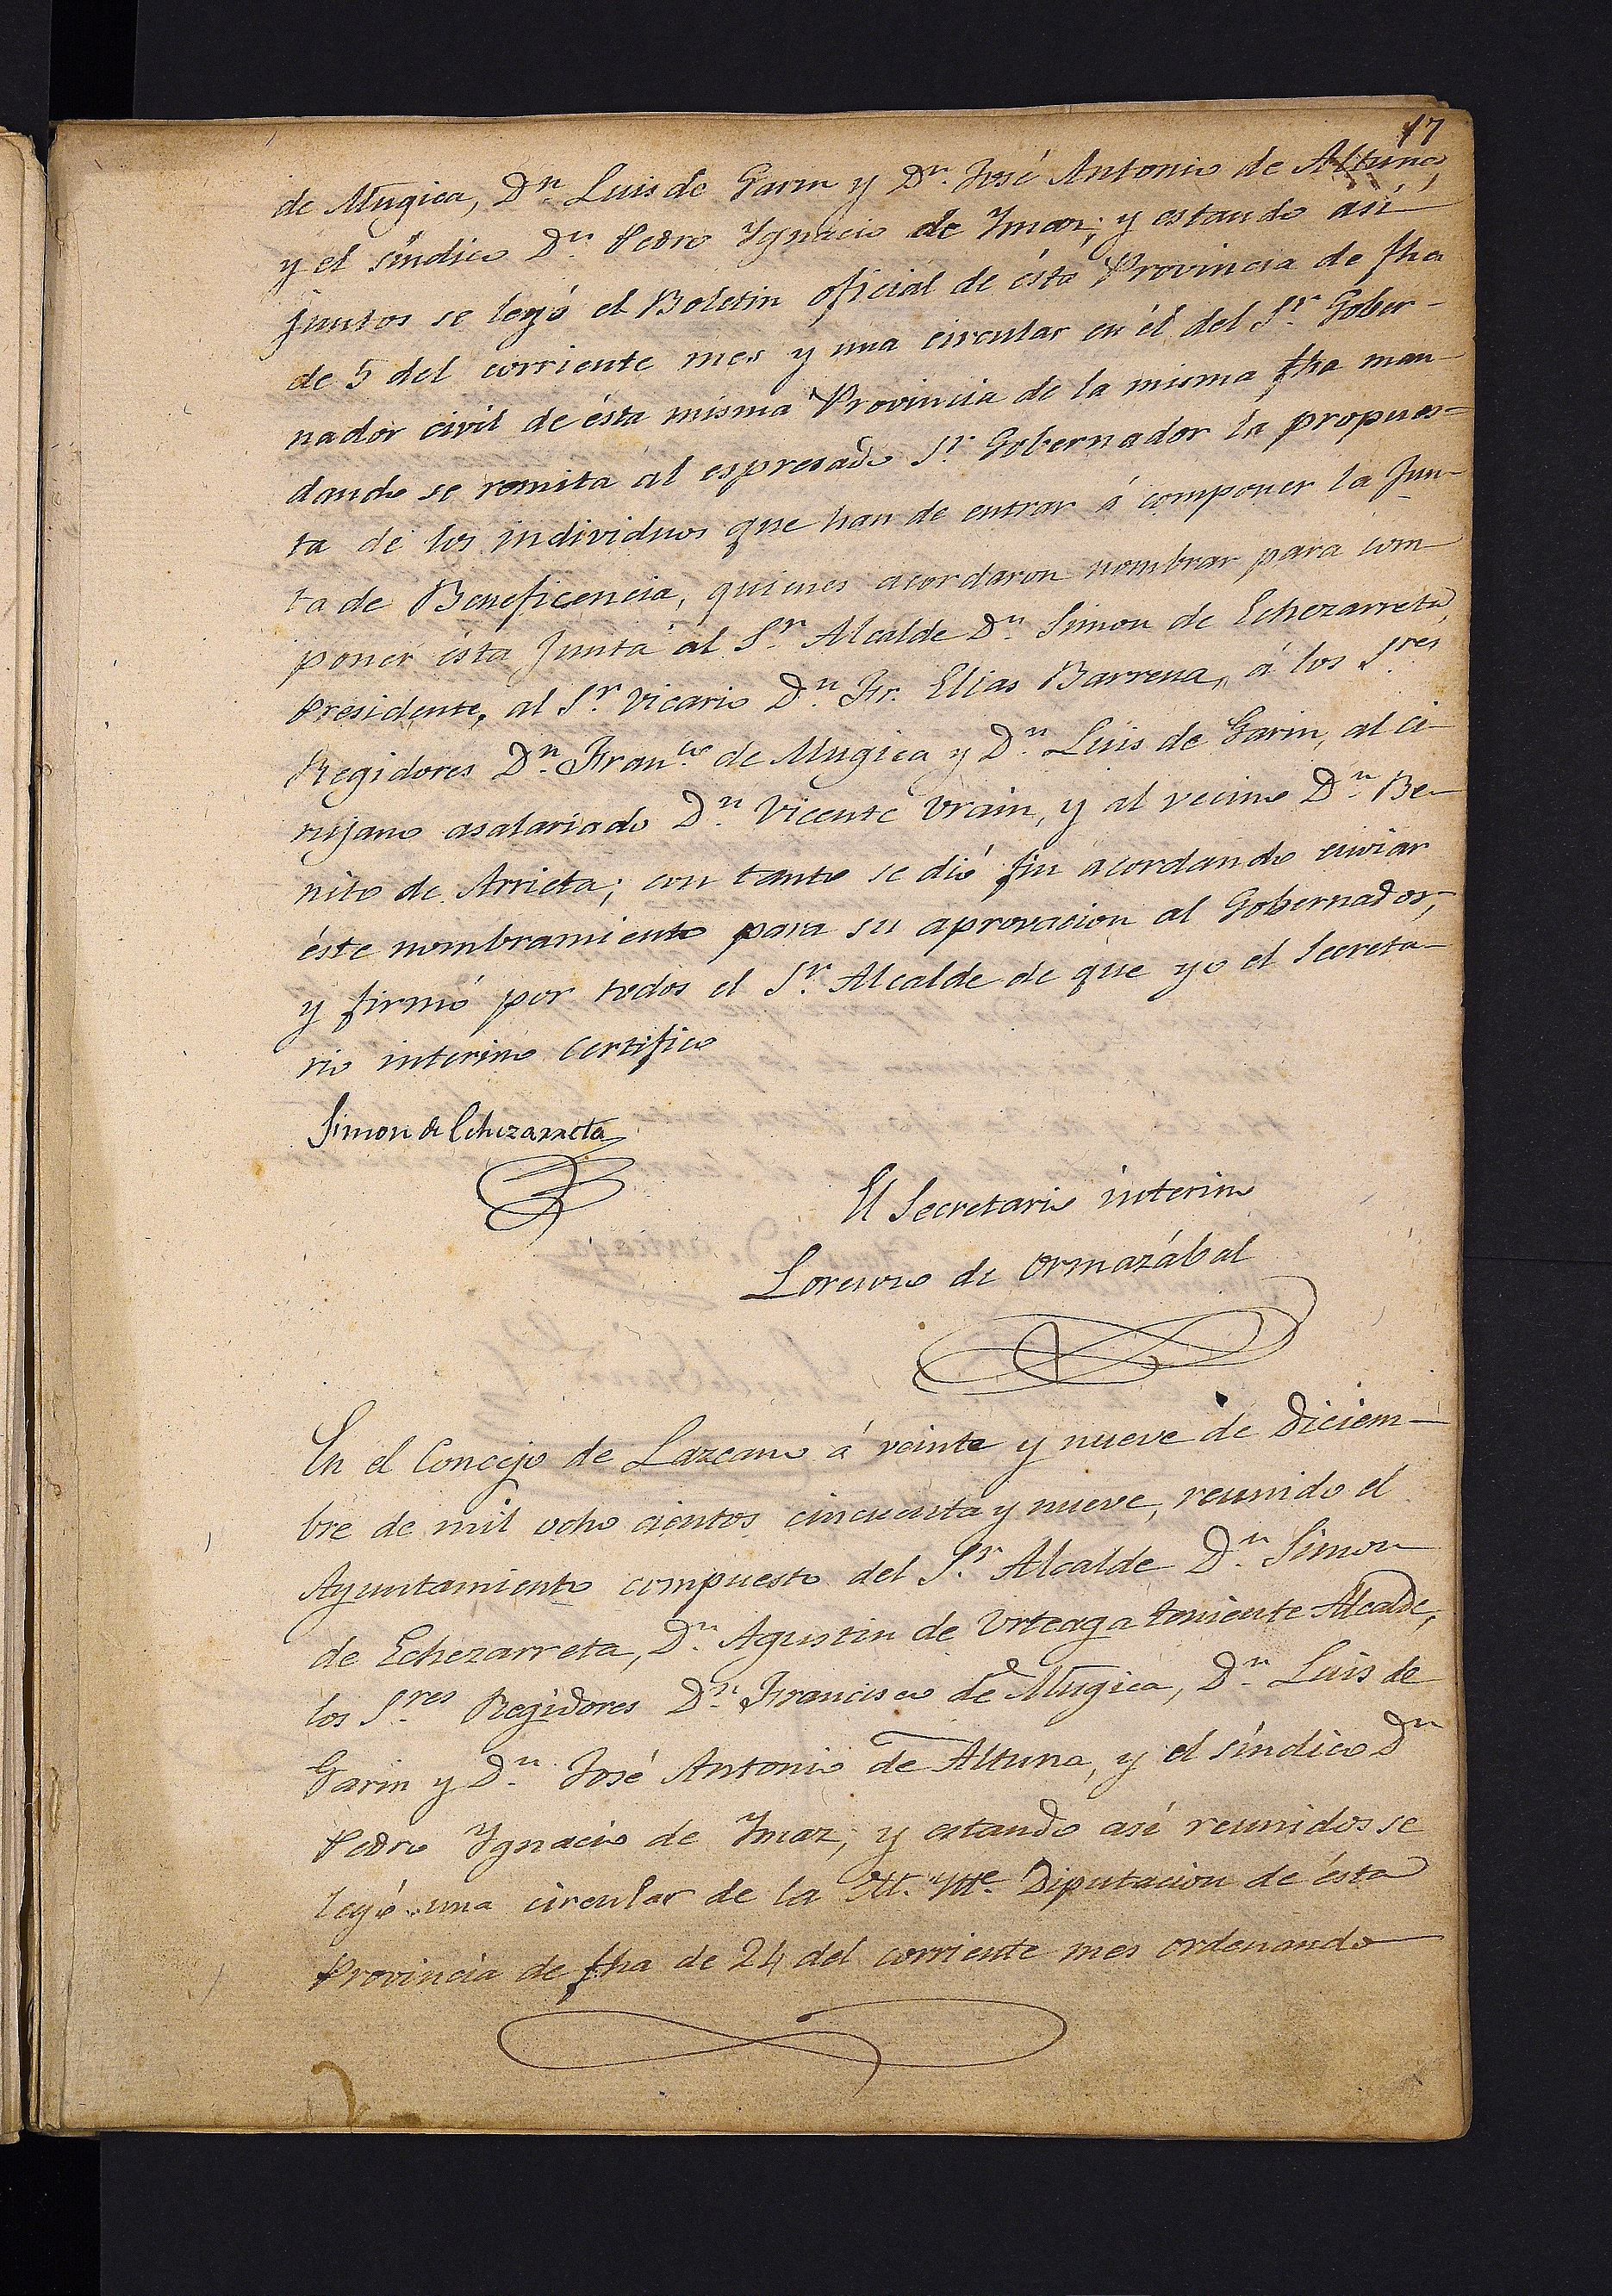 17
de Mugica, Dn. Luis de Garin y Dn. José Antonio de Altuna,
y el síndico Dn. Pedro Ygnacio de Ymaz; y estando así
juntos se leyó el Boletin oficial de ésta Provincia de fha
de 5 del corriente mes y una circular en él del Sr. Gober-
nador civil de ésta misma Provincia de la misma fha man-
dando se remita al espresado Sr. Gobernador la propues-
ta de los individuos que han de entrar á componer la Jun-
ta de Beneficencia, quienes acordaron nombrar para com
poner ésta Junta al Sr. Alcalde Dn. Simon de Echezarreta,
Presidente, al Sr. Vicario Dn. Fr. Elias Barrena, á los Sres.
Regidores Dn. Franco. de Mugica y Dn. Luis de Garin, al ci-
rujano asalariado Dn. Vicente Urain, y al vecino Dn. Be-
nito de Arrieta; con tanto se dió fin acordando enviar
éste nombramiento para su aprovacion al Gobernador,
y firmó por todos el Sr. Alcalde de que yo el Secreta-
rio interino certifico
Simon de Echezarreta
El Secretario interino
Lorenzo de Ormazábal
En el Concejo de Lazcano á veinte y nueve de Diciem-
bre de mil ocho cientos cincuenta y nueve, reunido el
Ayuntamiento compuesto del Sr. Alcalde Dn. Simon
de Echezarreta, Dn. Agustin de Urteaga teniente Alcalde,
los Sres. Regidores Dn. Francisco de Mugica, Dn. Luis de
Garin y Dn. José Antonio de Altuna, y el síndico Dn
Pedro Ygnacio de Ymaz, y estando así reunidos se
leyó una circular de la M. Ytte. Diputacion de ésta
Provincia de fha de 24 del corriente mes ordenando